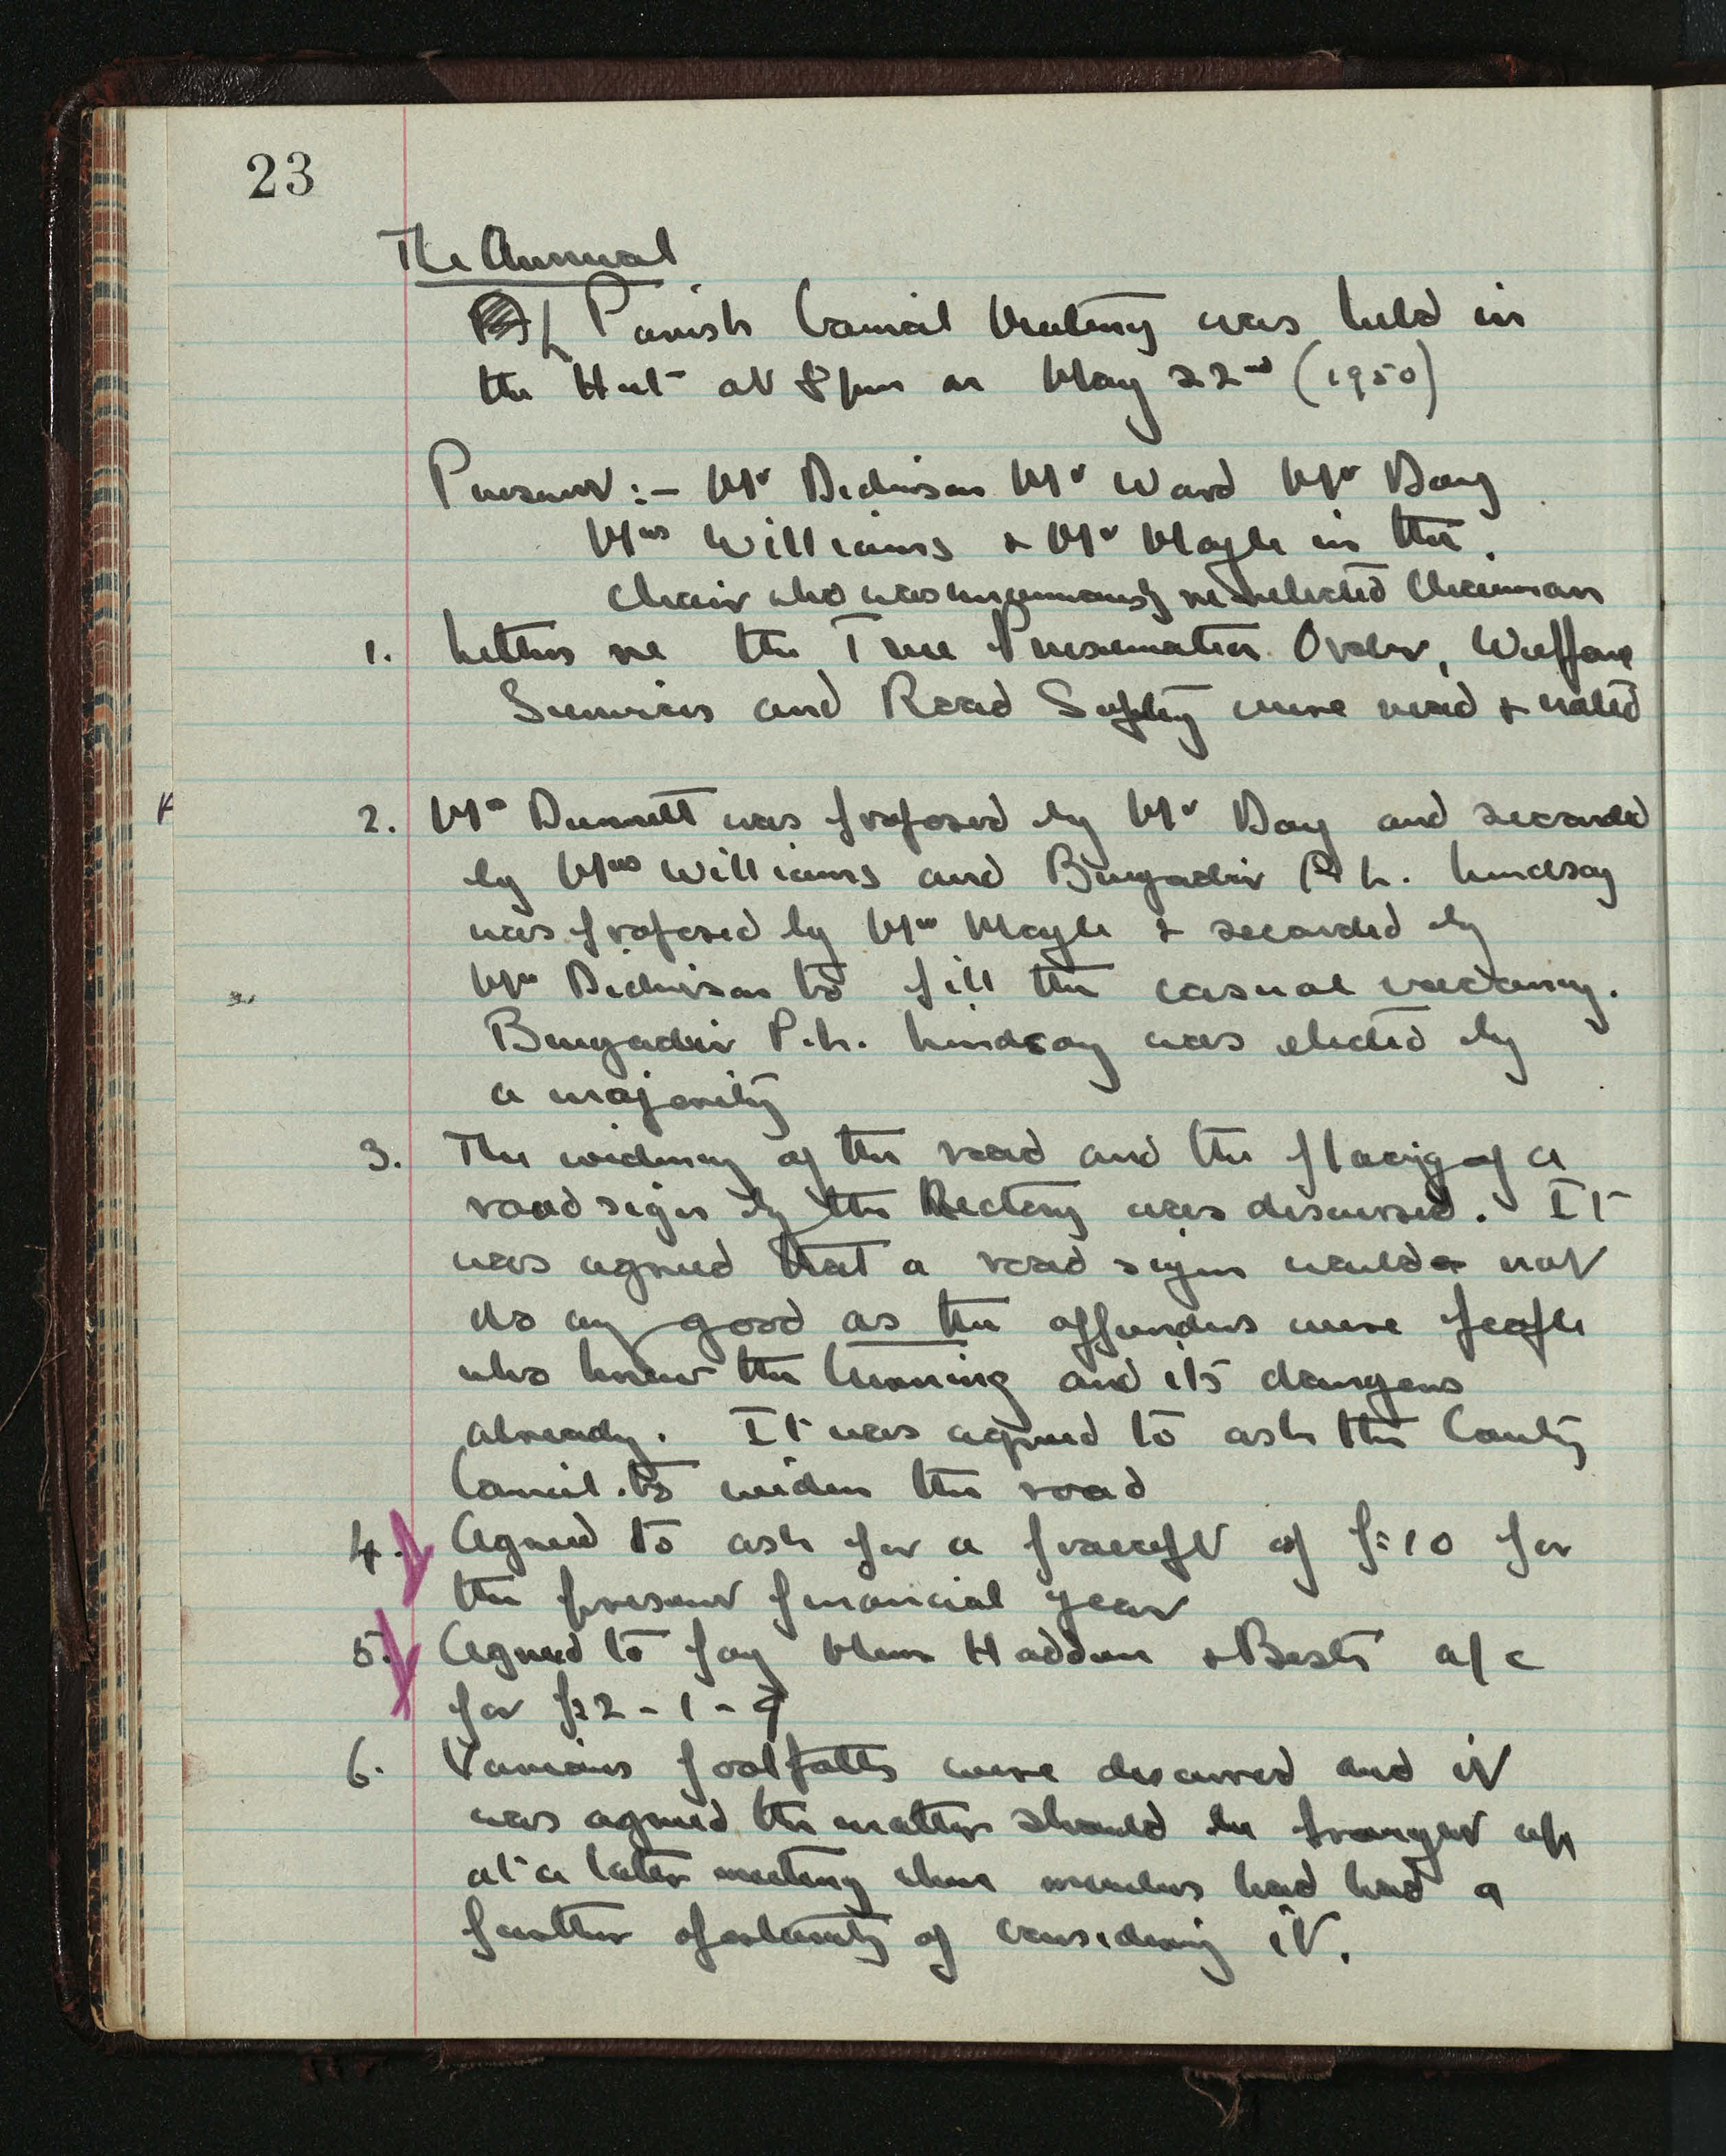 23
The Annual
Parish Council Meeting was held in
the Hut at 8pm on May 22nd (1950)
Present :- Mr Dickinson Mr Ward Mr Day
Mrs Williams & Mr Mayle in the
Chair who was unanimously re-elected Chairman
1. Letters re the Tree Preservation Order, Welfare
Services and Road Safety were read & noted
2. Mr Dunnett was proposed by Mr Day and seconded
by Mrs Williams and Brigadier P.L. Lindsay
was proposed by Mr Mayle & seconded by
Mr Dickinson to fill the casual vacancy.
Brigadier P.L. Lindsay was elected by
a majority
3. The widening of the road and the placing of a
road sign by the Rectory was discussed. It
was agreed that a road sign would not
do any good as the offenders were people
who knew the turning and its dangers
already. It was agreed to ask the County
Council to widen the road
4. Agreed to ask for a precept of £10 for
the present financial year
5. Agreed to pay Haddon & Bests a/c
for £2-1-9
6. Various footpaths were discussed and it
was agreed the matter should be brought up
at a later meeting when members had had a
further oportunity of considering it.